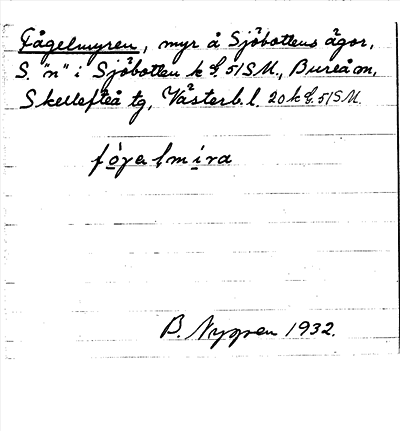 Fågelmyren, myr å Sjöbottens ägor,
S. "n" i Sjöbotten k G. 51SM., Bureå sn,
Skellefteå tg, Västerb. l. 20 k G. 51SM.
fógelmìra
B. Nygren 1932.